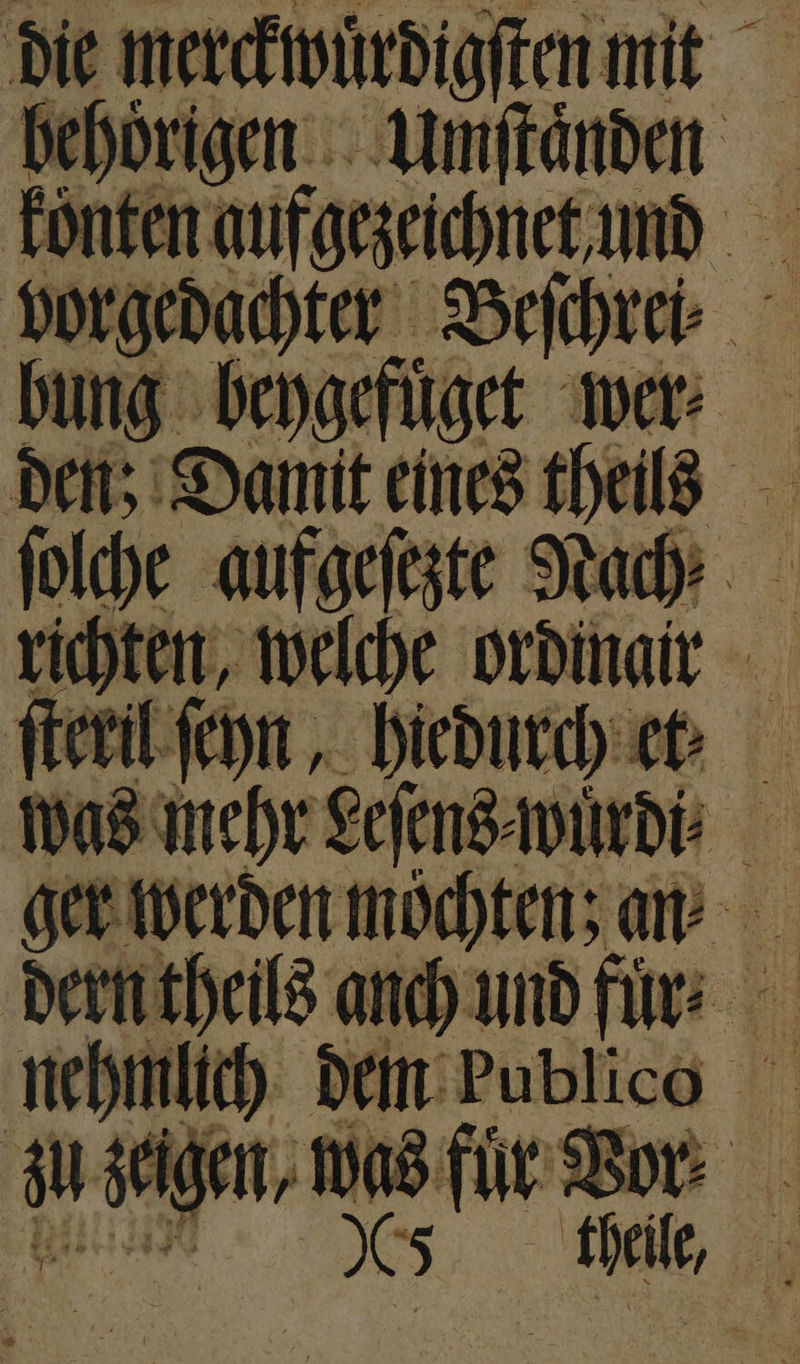 die merckwuͤrdigſten mit
behoͤrigen Umſtaͤnden
koͤnten aufgezeichnet, und
vorgedachter Beſchrei⸗
bung beygefuͤget wer⸗
den; Damit eines theils
ſolche aufgeſezte Nach⸗
richten, welche ordinair
ſteril ſeyn, hiedurch et⸗
was mehr Leſens⸗wuͤrdi⸗
ger werden moͤchten; an⸗
dern theils anch und fuͤr⸗
nehmlich dem Publico
zu zeigen, was fuͤr Vor⸗
)(5 theile,